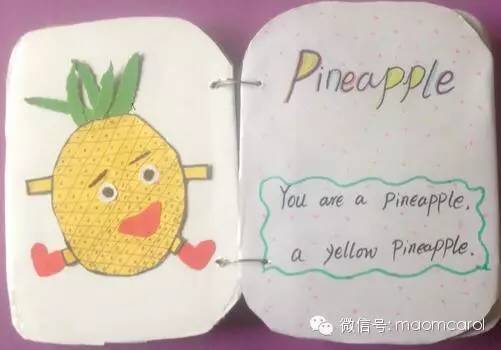 Pineapple
You are a pineapple.
a yellow pineapple.
微信号: maomcarol